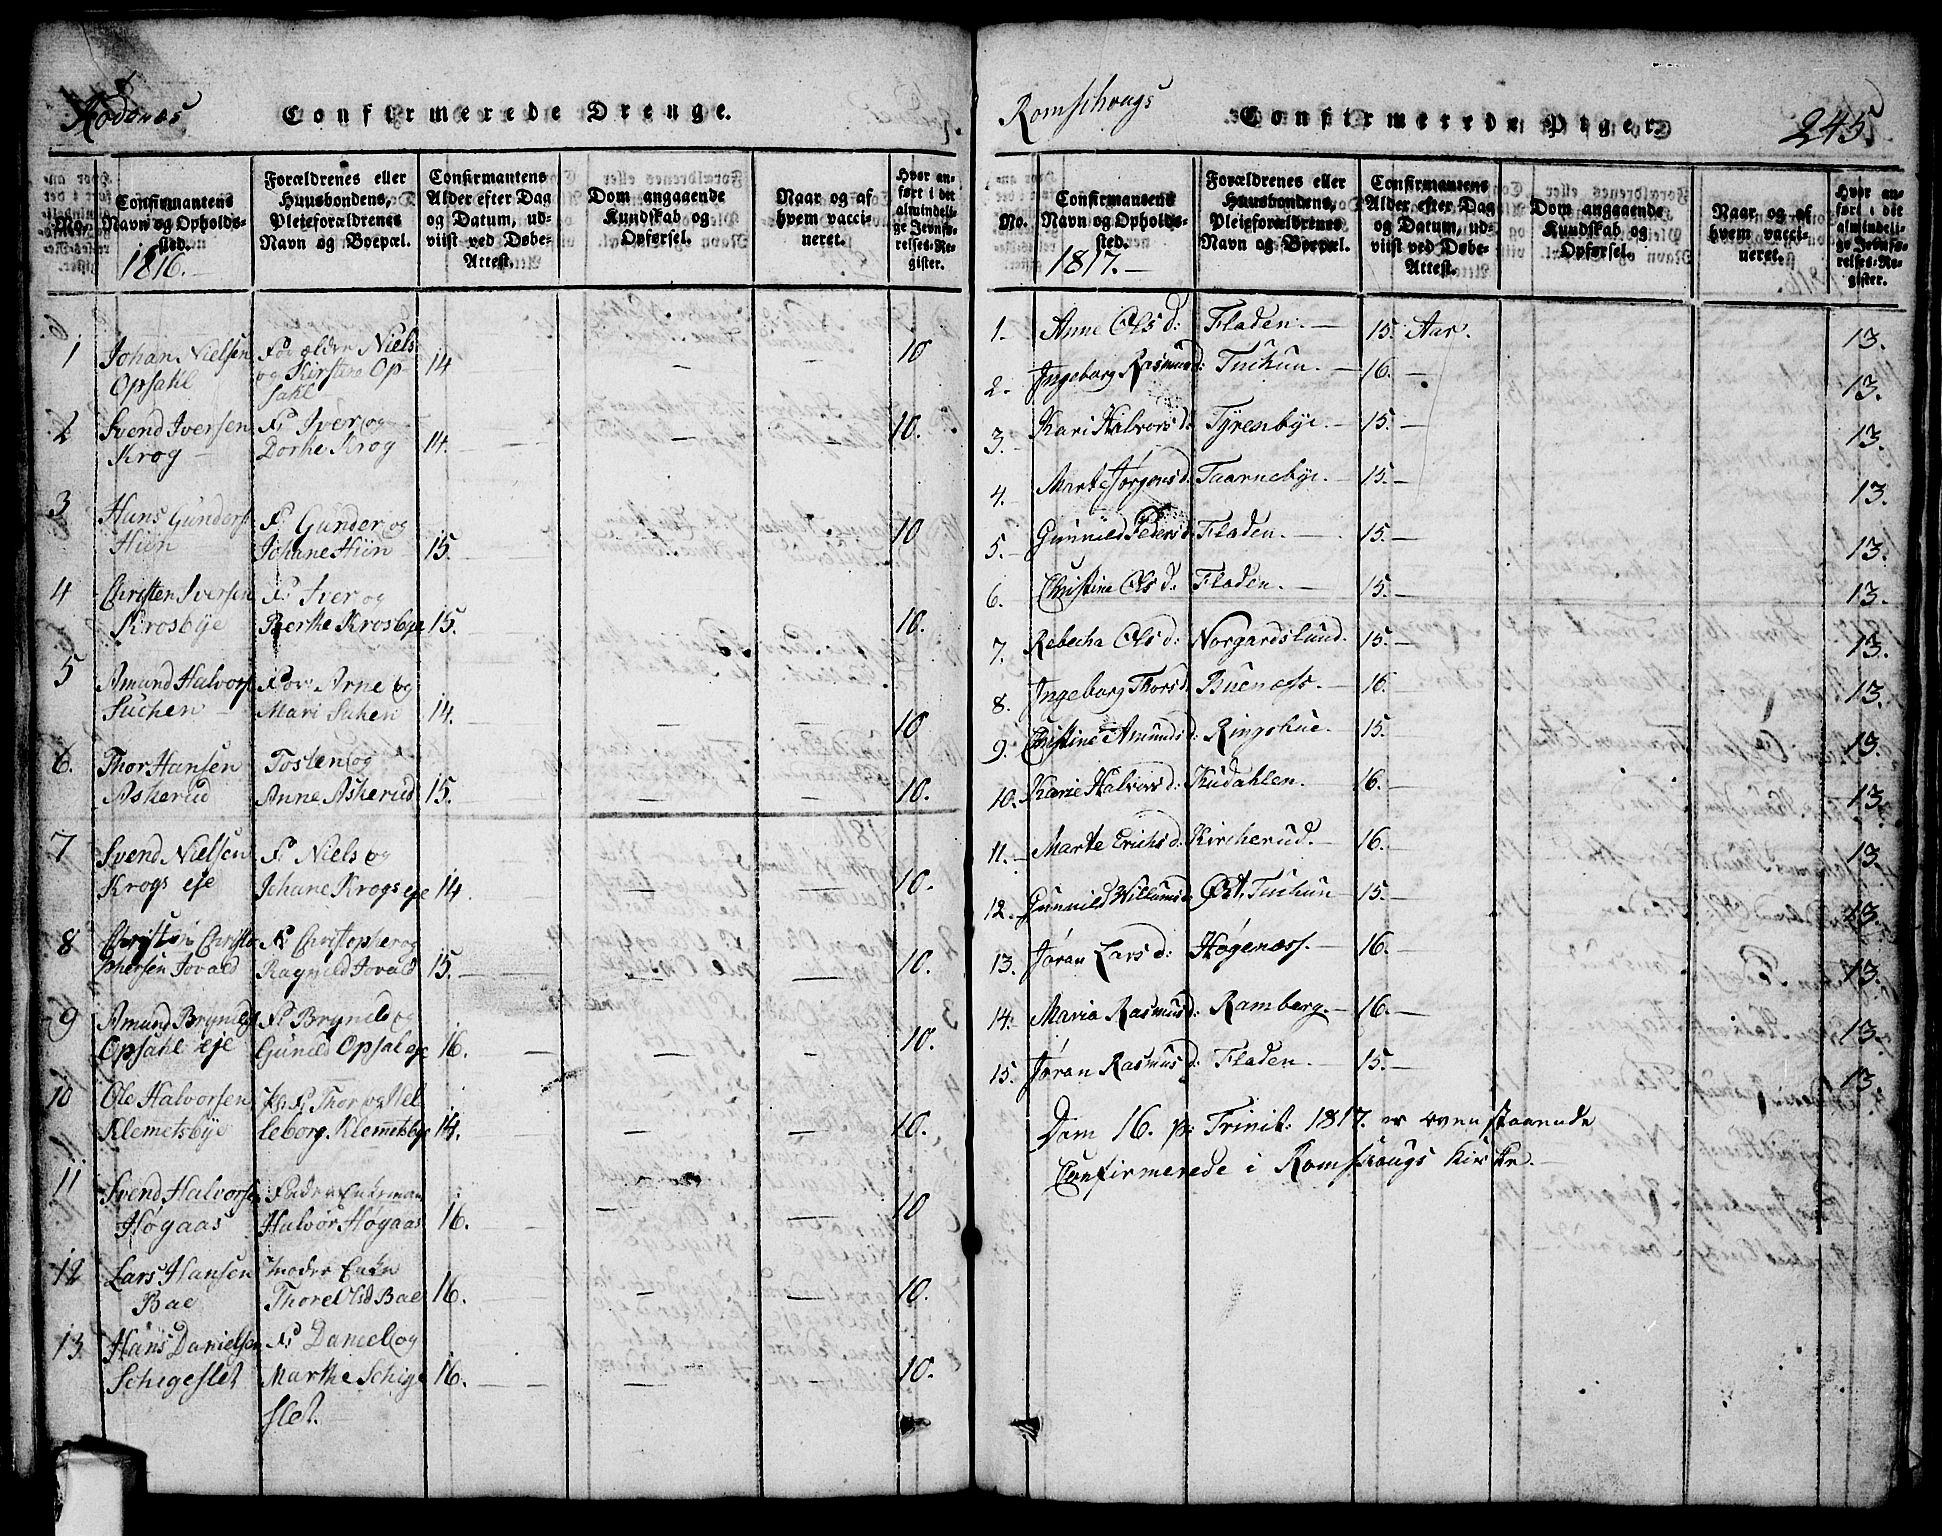 Rødenes
Confirmerede Drenge.
No.
Confirmantens Navn og Opholds-sted.
1816.
Forældrenes eller Huusbondens, Pleieforældrenes Navn og Boepæl.
Confirmantens Alder efter Dag og Datum, ud-viist ved Døbe-Attest.
Dom angaaende Kundskab og Opførsel.
Naar og af hvem vacci-neret.
Hvor an-ført i det almindeli-ge Jevnfø-relses-Re-gister.
1 Johan Nielsen Forældre Niels 14 — 10
Opsahl og Kirsten Op-
sahl
2 Svend Iversen F: Iver og 14. — 10.
Krog Dorthe Krog
3 Hans Gunders F: Gunder og
Hiin Johane Hiin 15. 10
4 Christen Iversen F: Iver og
Krosbÿe Berthe Krosbye 15. 10.
5 Amund Halvors For: Arne og
Suchen Mari Suhen 14. — 10
6. Thor Hansen Tosten og
Askerud Anne Askerud 15. — 10.
7 Svend Nielsen F: Niels og
Krogs eje Johane Krogs eje 14. — 10.
8 Christen Christo F: Christopher og
phersen Jovald Ragnild Jovald 15. — 10.
9 Amund Bryndels F: Bryndel og
Opsahl eje Gunild Opsal eje 16. — 10.
10 Ole Halvorsen F: Thor og Hel
Klemetsbÿe leborg Klemetsbye 14. — 10.
11 Svend Halvorsen Fader Enkeman
Høgaas Halvor Høgaas 16. — 10
12 Lars Hansen Moder Enke
Bae Thore Olsd Bae 16. — 10.
13 Hans Danielsen F: Daniel og
Schigeslet Marthe Schige 16. — 10.
slet.
Romschougs
Confirmerede Piger.
245.
No.
Confirmantens Navn og Opholds-sted.
1817.—
Forældrenes eller Huusbondens, Pleieforældrenes Navn og Boepæl.
Confirmantens Alder efter Dag og Datum, ud-viist ved Døbe-Attest.
Dom angaaende Kundskab og Opførsel.
Naar og af hvem vacci-neret.
Hvor an-ført i det almindeli-ge Jevnfø-relses-Re-gister.
1. Anne Olsd: Fladen.— 15. Aar. 13.
2. Ingeborg Rasmusd: Tuckun.— 16.— 13.
3. Kari Halvorsd: Tyrenbye.— 15.— 13.
4. Marte Jørgensd: Taarnebye.— 15.— 13.
5.— Gunnild Pedersd: Fladen.— 15.— 13.
6. Christine Olsd: Fladen.— 15.— 13.
7. Rebecha Olsd: Norgardslund. 15.— 13.
8. Ingeborg Thorsd: Buenæss.— 16.— 13.
9. Christine Amundsd: Ringsbue.— 15. 13.
10. Karie Halvorsd: Kudahlen. 16.— 13.
11.— Marte Erichsd: Kircherud.— 16.— 13.
12. Gunnild Willumsd: Øst, Tuckun 15.— 13.
13. Jøran Larsd: Høgenæss.— 16.— 13.
14. Maria Rasmusd: Ramberg.— 16.— 13.
15. Jøran Rasmusd: Fladen.— 15.— 13.
Dom 16. p: Trinit: 1817. er ovenstaaende
Confirmerede i Romschougs Kirke.—